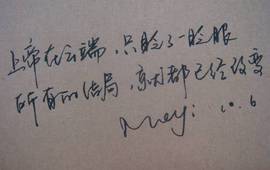 上帝在云端，只眨了一眨眼
所有的结局，原因都已经改变
10.6